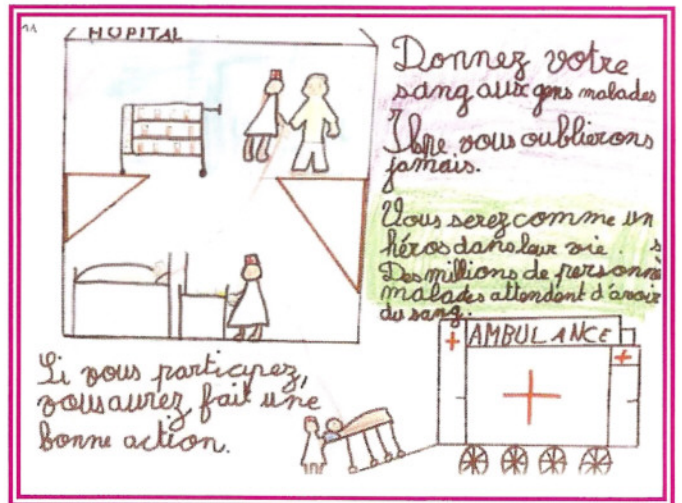 11
HOPITAL
Donnez votre
sang aux gens malades
Ils ne vous oublierons
jamais.
Vous serez comme un
héros dans leur vie.
Des millions de personnes
malades attendent d'avoir
du sang.
AMBULANCE
Si vous participez,
vous aurez fait une
bonne action.